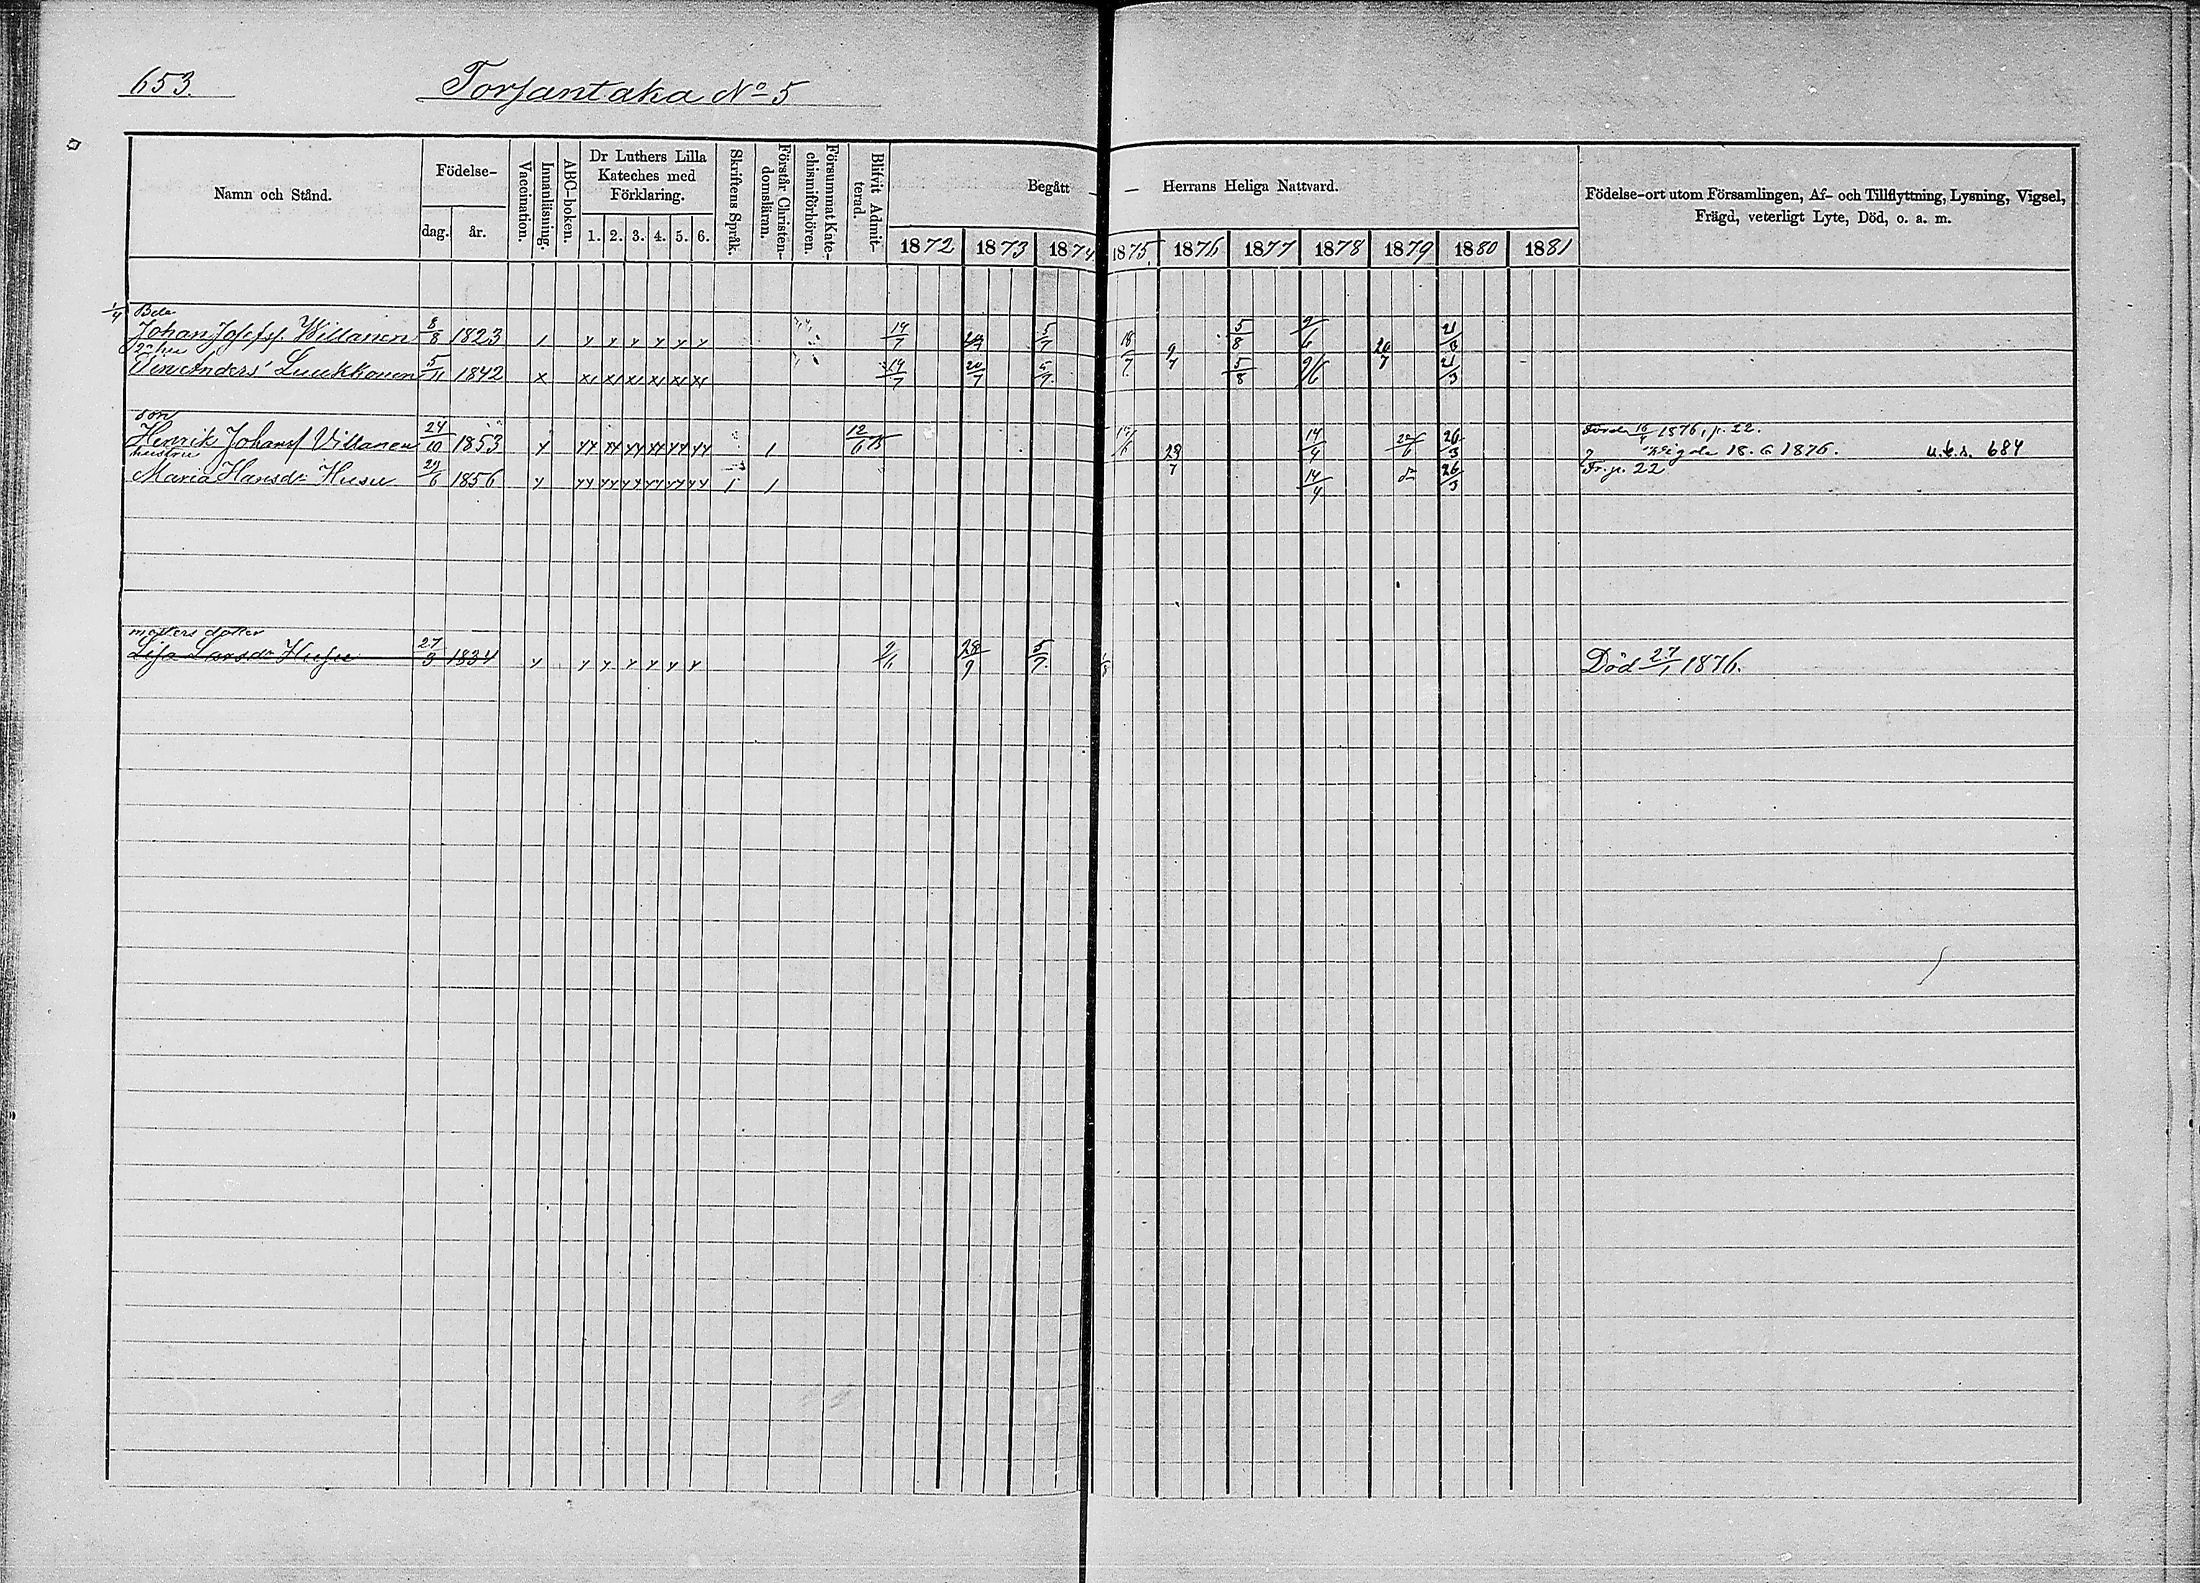 653.
Torsantaka No 5
Namn och Stånd.
Födelse-
dag. år.
Vaccination.
Innanläsning.
ABC-boken.
Dr Luthers Lilla
Kateches med
Förklaring.
1. 2. 3. 4. 5. 6.
Skriftens Språk.
Förstår Christen-
domsläran.
Försummat Kate-
chismiförhören.
Blifvit Admit-
terad.
Begått — — Herrans Heliga Nattvard.
1872 1873 1874 1875 1876 1877 1878 1879 1880 1881
Födelse-ort utom Församlingen, Af- och Tillflyttning, Lysning, Vigsel,
Frägd, veterligt Lyte, Död, o. a. m.
1/4
Johan Josefss. Willanen 8/8 1823 14/7 5/7 18/7 9/7 5/8 9/6 20/7 21/3
2 hu
Anders' Luukkonen 5/11 1842 14/7 20/7 5/7 5/8 9/6 21/3
son
Henrik Johanss Villanen 24/10 1853 12/6 73 29/7 14/4 26/3 16/4 1876, p. 22.
hustru
Vigde 18. 6 1876. u.k.s. 684
Maria Hansdr Husu 29/6 1856 14/4 26/3 Fr. p. 22
mosters dotter
Lisa Larsdr Husu 27/3 1834 28/9 5/7 Död 27/1 1876.